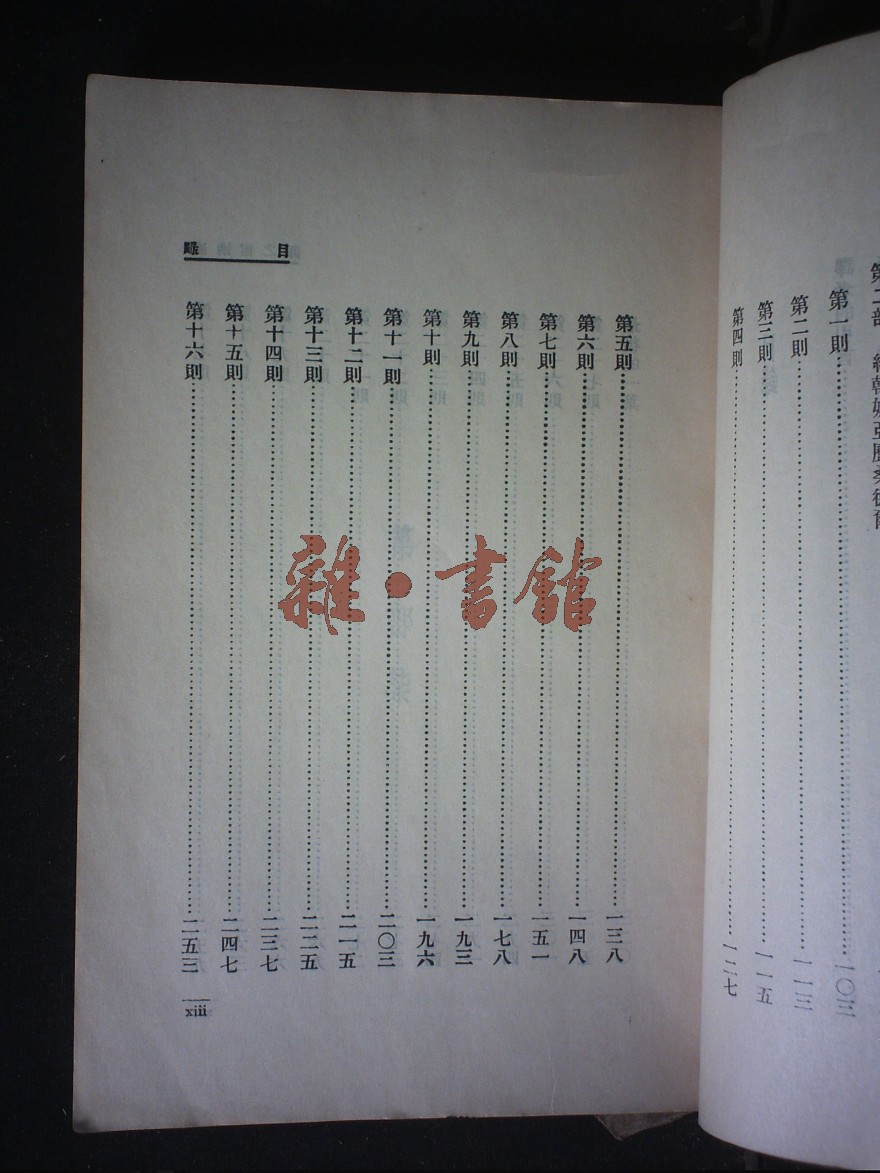 第一則……一〇三
第二則……一一三
第三則……一一五
第四則……一二七
目錄
第五則……一三八
第六則……一四八
第七則……一五一
第八則……一七八
第九則……一九三
第十則……一九六
第十一則……二〇三
第十二則……二一五
第十三則……二二五
第十四則……二三七
第十五則……二四七
第十六則……二五三
xiii
雜·書館